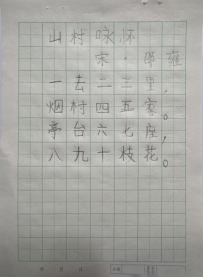 山村咏怀
宋·邵雍
一去二三里，
烟村四五家。
亭台六七座，
八九十枝花。